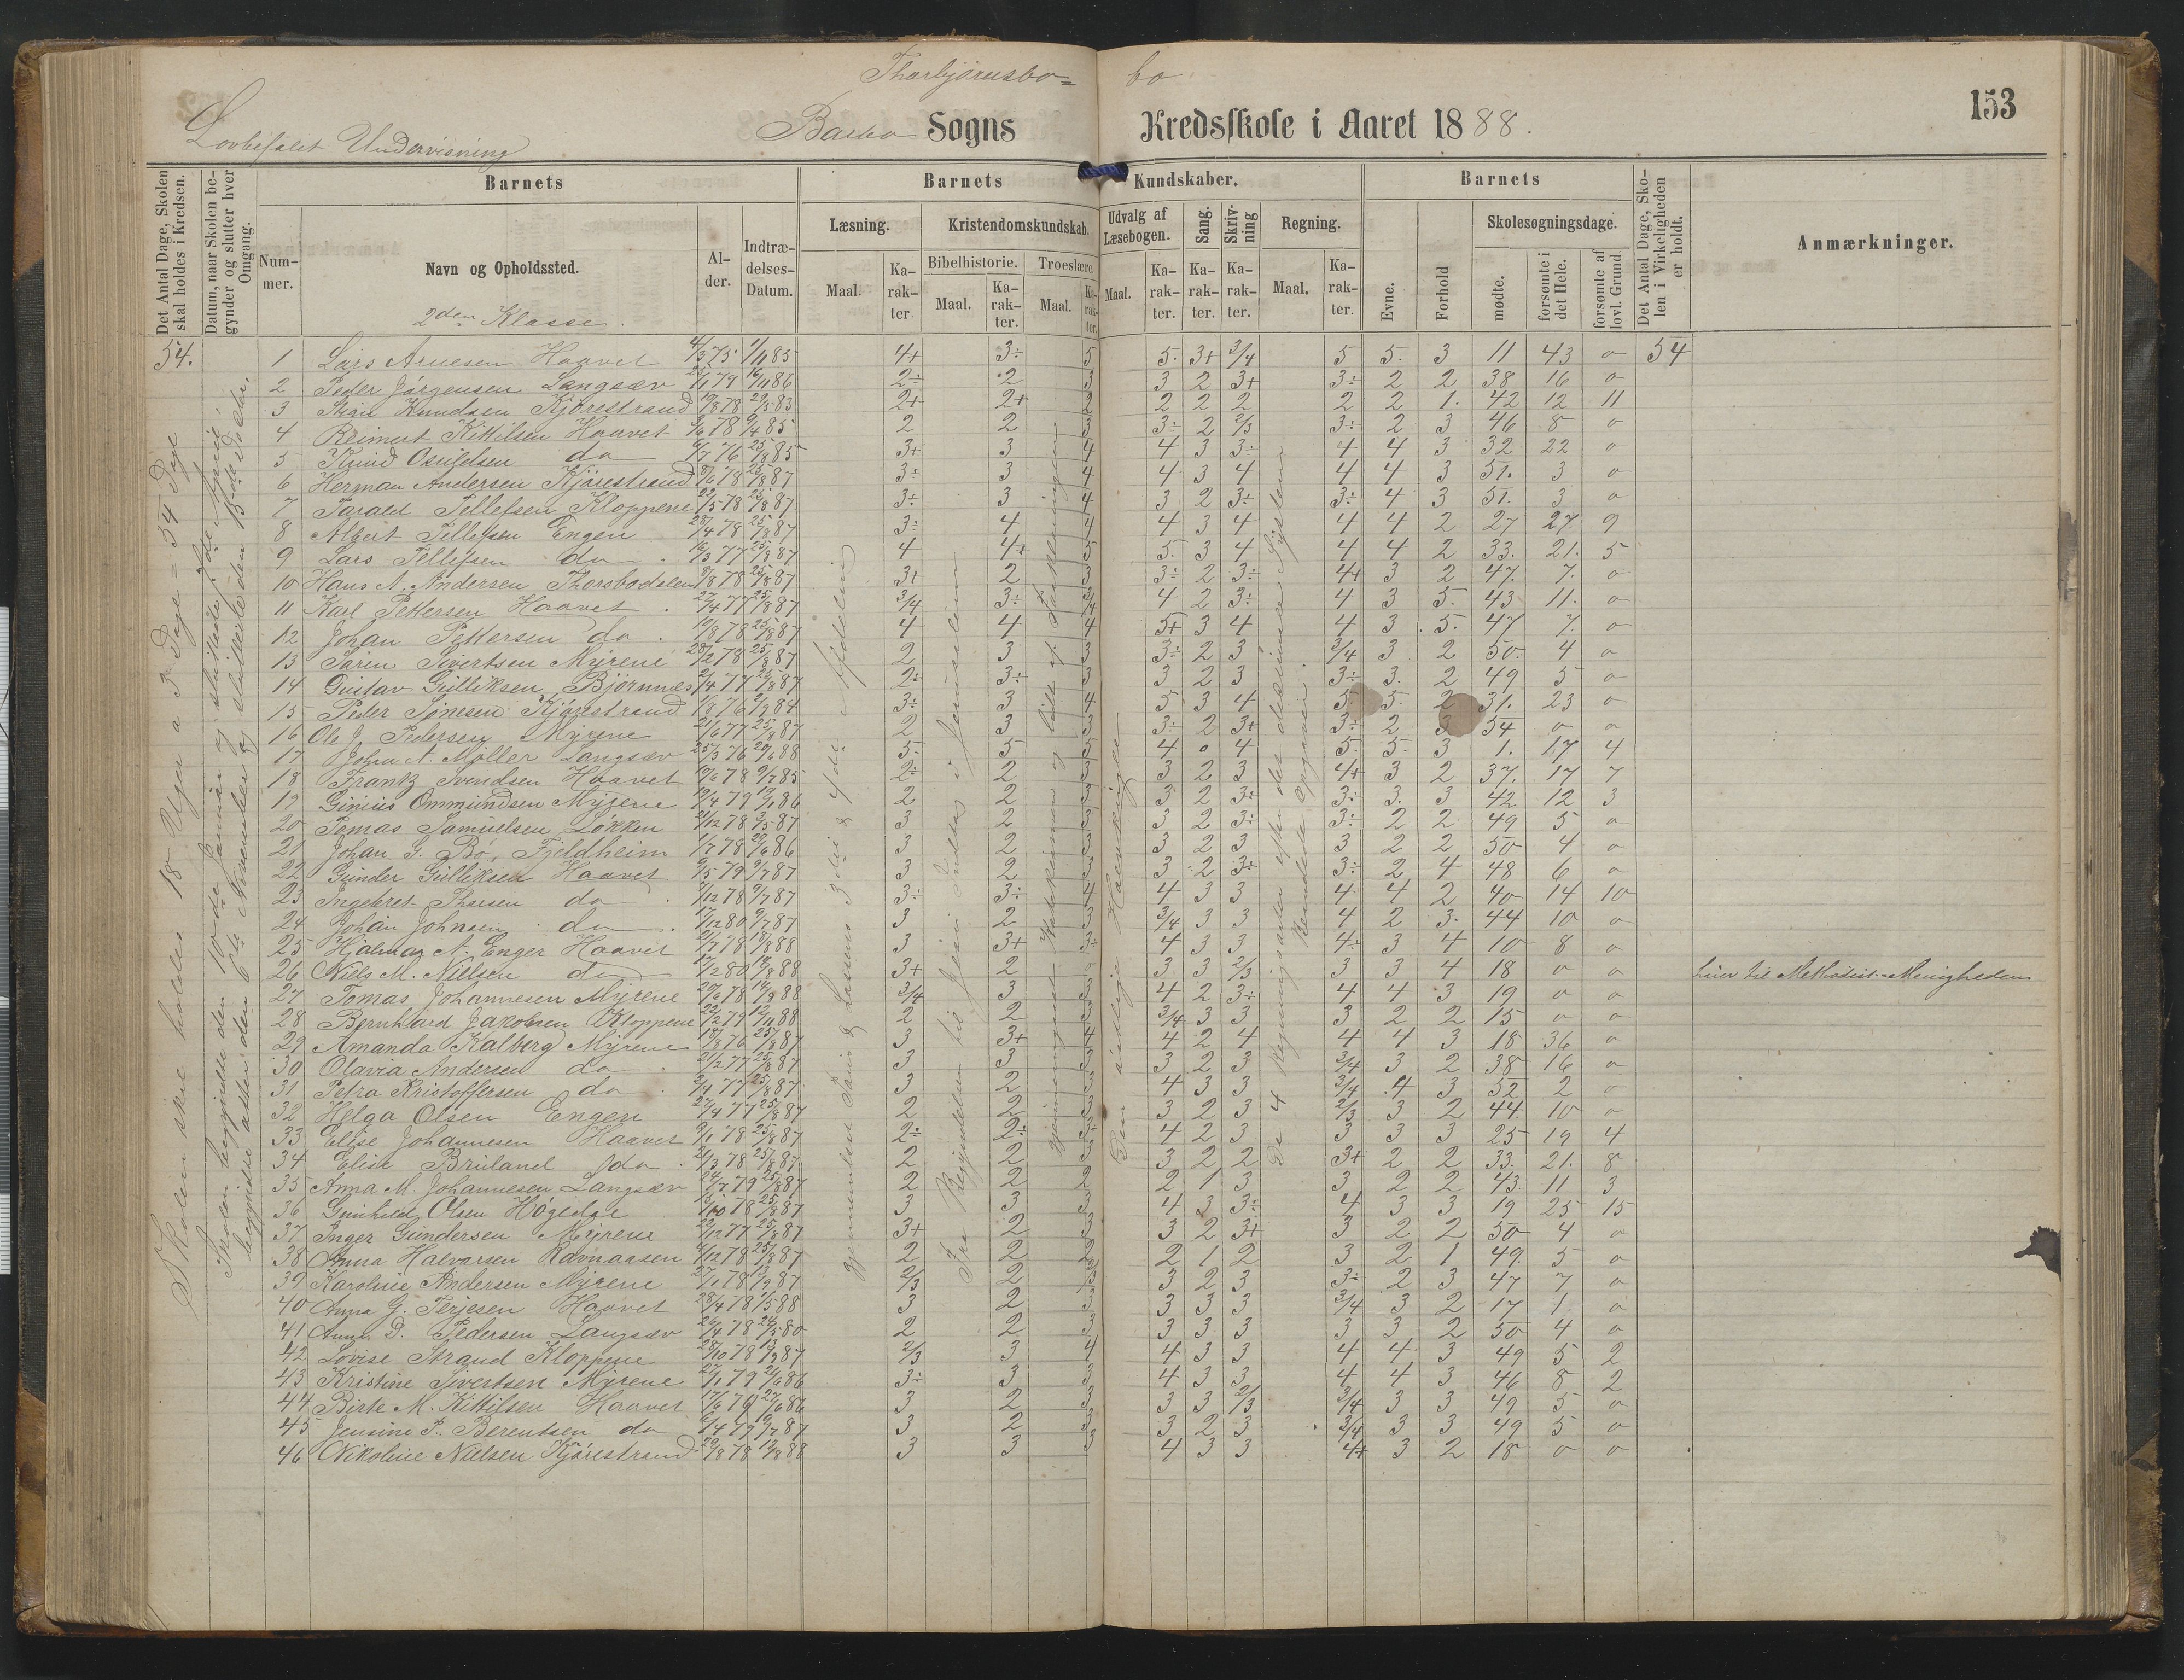 Thorbjörnsbo= bo
153
Lovbefalet Undervisning
Barbo Sogns Kredsskole i Aaret 1888.
Det Antal Dage, Skolen skal holdes i Kredsen.
Datum, naar Skolen begynder og slutter hver Omgang.
Barnets
Barnets Kundskaber.
Barnets
Det Antal Dage, Skolen i Virkeligheden er holdt.
Anmærkninger.
Nummer.
Navn og Opholdssted.
Alder.
Indtrædelses-Datum.
Læsning.
Kristendomskundskab.
Udvalg af Læsebogen.
Sang.
Skrivning
Regning.
Evne.
Forhold
Skolesøgningsdage.
Bibelhistorie.
Troeslære.
Maal. Karakter. Maal. Karakter. Maal. Karakter. Maal. Karakter. Karakter. Karakter. Maal. Karakter.
mødte.
forsømte i det Hele.
forsømte af lovl. Grund.
2den Klasse.
54. 1 Lars Arnesen Haavet 4/3 75 1/11 85 4+ 3÷ 5 5. 3+ 3/4 5 5. 3 11 43 0 54
2 Peder Jörgensen Langsæv 25/1 79 16/11 86 2÷ 2 3 3 2 3+ 3÷ 2 2 38 16 0
3 Stian Knudsen Kjörestrand 19/8 78 29/5 83 2+ 2+ 2 2 2 2 2 2 1. 42 12 11
4 Reimert Kittilsen Haavet 5/6 78 9/4 85 2 2 3 3÷ 2 2/3 3÷ 2 3 46 8 0
5 Knud Osulfsen do 6/7 76 25/8 85 3+ 3 4 4 3 3÷ 4 4 3 32 22 0
6 Herman Andersen Kjörestrand 8/6 78 25/8 87 3÷ 3 4 4 3 4 4 4 3 51. 3 0
7 Tarald Tellefsen Kloppene 22/5 78 25/8 87 3÷ 3 4 3 2 3÷ 3÷ 4 3 51. 3 0
8 Albert Tellefsen Engen 28/4 78 25/8 87 3÷ 4 4 4 3 4 4 4 2 27 27 9
9 Lars Tellefsen do 16/3 77 25/8 87 4 4+ 5 5. 3 4 4 4 2 33. 21. 5
10 Hans N. Andersen Thorsbodalen 8/8 78 25/8 87 3+ 2 3 3÷ 2 3÷ 4+ 3 2 47. 7. 0
11 Karl Pettersen Haavet 27/4 77 25/8 87 3/4 3÷ 3/4 4 2 3÷ 4 3 5. 43 11. 0
12 Johan Pettersen do. 10/8 78 25/8 87 4 4 4 5+ 3 4 4 3 5. 47 7. 0
13 Sören Sivertsen Myrene 28/2 78 25/8 87 2 3 3 3÷ 2 3 3/4 3 2 50. 4 0
14 Gustav Gulliksen, Björnnes 2/4 77 25/8 87 2÷ 3÷ 3 3 2 3 3÷ 3. 2 49 5 0
15 Peder Jensen Kjörestrand 1/8 76 2/9 84 3÷ 3 4 5 3 4 5. 5. 2 31. 23 0
16 Ole J. Pedersen Myrene 2/6 77 25/8 87 2 3 3 3÷ 2 3+ 3÷ 2 3 54 0 0
17 John A. Möller Langsæv 25/3 76 20/6 88 5. 5 5 4 0 4 5. 5. 3 1. 17 4
18 Frantz Svendsen Haavet 10/6 78 9/7 85 2÷ 2 3 3 2 3 4+ 3 2 37. 17 7
19 Ginius Ommundsen Myrene 19/4 79 19/1 86 2 2 3 3 2 3÷ 3÷ 3. 3 42 12 3
20 Tomas Samuelsen Lökken 21/12 78 3/5 87 3 2 3 3 2 3÷ 3÷ 2 2 49 5 0
21 Johan G. Bö, Fjeldheim 1/7 78 22/6 86 3 2 3 3 2 3 3 2 2 50 4 0
22 Gunder Gulliksen Haavet 9/5 79 9/7 87 3 2 3 3 2 3÷ 3÷ 2 4 48 6 0
23 Ingebret Thorsen do 8/12 78 9/7 87 3÷ 3÷ 4 4 3 3 4 4 2 40 14 10
24 Johan Johnsen do. 17/12 80 9/7 87 3 2 3 3/4 3 3 4 2 3. 44 10 0
25 Hjalmar A. Enger Haavet 2/7 78 18/8 88 3 3+ 3÷ 4 3 3 4÷ 3 4 10 8 0
26 Niels M. Nielsen do 17/2 80 18/8 88 3+ 2 0 3 3 2/3 3 3 4 18 0 0 hører til Methodist-Menigheden
27 Tomas Johannesen Myrene 20/6 78 14/8 88 3/4 3 3 4 2 3÷ 4 4 3 19 0 0
28 Bernhard Jakobsen Kloppene 22/2 79 12/11 88 2 2 3 3/4 3 3 3 2 2 15 0 0
29 Amanda Kalberg Myrene 18/8 76 25/8 87 3 3+ 4 4 2 4 4 4 3 18 36 0
30 Olavia Andersen do. 21/2 77 25/8 87 3 3 3 3 2 3 3/4 3 2 38 16 0
31 Petra Kristoffersen do. 2/4 77 25/8 87 3 2 3 4 3 3 3/4 4 3 52 2 0
32 Helga Olsen Engen 27/4 77 25/8 87 2 2 3 3 2 3 2/3 3 2 44. 10 0
33 Elise Johannesen Haavet 9/1 78 25/8 87 2÷ 2÷ 3÷ 4 2 3 3 3 3 25 19 4
34 Elise Bruland do. 21/3 78 25/8 87 2 2 3 3 2 2 3+ 2 2 33. 21. 8
35 Anna M. Johannesen Langsæv 24/7 79 25/8 87 2 2 2 2 1 3 3 2 2 43. 11 3
36 Gunhild Olsen Högedal 15/10 78 25/8 87 3 3 3 4 3 3÷ 4 3 3 19 25 15
37 Inger Gundersen Myrene 22/12 77 25/8 87 3+ 2 3 3 2 3+ 3 2 2 50 4 0
38 Anna Halvorsen Ravnaasen 4/12 78 25/8 87 2 2 2 2 1 2 3 2 1 49. 5 0
39 Karoline Andersen Myrene 27/1 78 13/9 87 2/3 2 3 3 2 3 3÷ 2 3 47 7 0
40 Anna G. Terjesen Haavet 28/4 78 1/5 88 3 2 3 3 3 3 3/4 3 2 17 1 0
41 Anna D. Pedersen Langsæv 26/4 78 24/5 80 2 2 3 3 3 3 3 3 2 50 4 0
42 Lovise Strand Kloppene 28/10 78 13/9 87 2/3 3 4 4 3 3 4 4 3 49 5 2
43 Kristine Sivertsen Myrene 27/1 79 21/6 86 3÷ 3 3 4 3 3 4 4 3 46 8 2
44 Birte M. Kittilsen Haavet 17/6 79 22/6 86 3 2 3 3 3 2/3 3/4 3 3 49 5 0
45 Jensine P. Berentsen do 6/4 79 19/7 87 3 2 3 3 2 3 3/4 3 3 49 5 0
46 Nikoline Nielsen Kjörestrand 29/8 78 13/8 88 3 3 3 4 3 3 4+ 3 2 18 0 0
Skolen skal holdes 18 Uger a 3 Dage = 54 Dage
Skolen begyndte den 10de Januar og sluttede 7de April
begyndte atter den 6te November og sluttede den 15de Decbr.
Gjennemlæst Jensens Læsebog 3die & 4de Afdeling
Fra Begyndelsen til Jesu Indtog i Jerusalem
Gjennemgaaet Katekismen og lidt af Forklaringen
Den aandelige Havekrigen
De 4 Regningsarter efter det decimale System
Benævnte Opgaver.